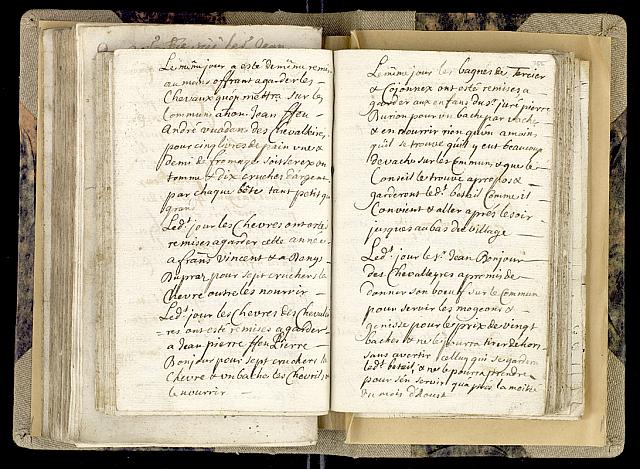 Le même jour a esté de même remis
au moins offrant a garder les
Chevaux qu'on mettra sur les
Communs a hon. Jean ffeu
André vuadens des Chevalleires
pour cinq livres de pain une &
demi de fromage
tomme & dix cruches d'argent
par chaque bête tant petit que
grans
Led.t jour les Chevres ont estes
remises a garder cette année
a frans Vincent & a Danys
Dupraz pour sept cruches la
Chevre outre les nourrir
Led.t jour les Chevres des Chevallé
=res ont esté remises a garder
a Jean pierre ffeu Pierre
Bonjour pour sept cruches la
Chevre & un bache les Chevris &
le nourrir
Le même jour les bagnes des Tercier
& Cojonnex ont esté remises a
garder aux enfans du Sr. juré pierre
Burion pour un bache par vache
& en nourrir rien qu'un a moins
qu'il se trouve qu'il y eut beaucoup
de vache sur les Communs & que le
Conseil le trouve a propos &
garderont le d.t bestail Comme il
Convient & aller après le soir
jusques au bas du village
Led.t jour le Sr. Jean Bonjour
des Chevalleyres a promis de
donner son boeuf sur le Commun
pour servir les mogeons &
genisse pour le prix de vingt
baches & ne les pourra tirer dehors
sans avertir celluy qui
led.t betail & ne le pourra prendre
pour s'en servir qu'après la moitié
du mois d'Aoust